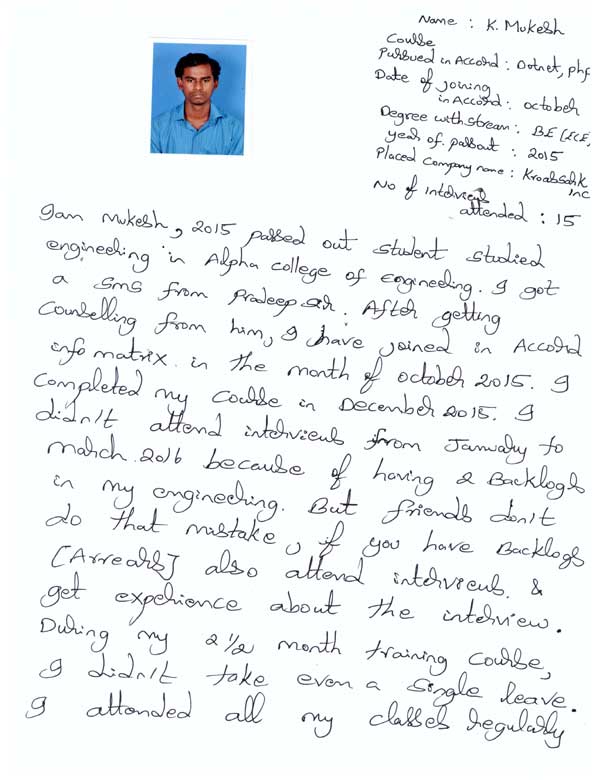 Name : K. Mukesh
Course
Pursued in Accord : Dotnet, php
Date of joining
in Accord : october
Degree with stream : BE [ECE]
year of passout : 2015
Placed Company name :
Inc
No of interviews
attended : 15
I am Mukesh, 2015 passed out student studied
engineering in Alpha college of engineering. I got
a SMS from Pradeep sir. After getting
Counselling from him, I have joined in Accord
info matrix in the month of october 2015. I
Completed my Course in December 2015. I
didn't attend interviews from January to
march 2016 because of having 2 Backlogs
in my engineering. But friends don't
do that mistake, if you have Backlogs
[Arrears] also attend interviews &
get experience about the interview.
During my 2 1/2 month training Course,
I didn't take even a single leave.
I attended all my classes regularly